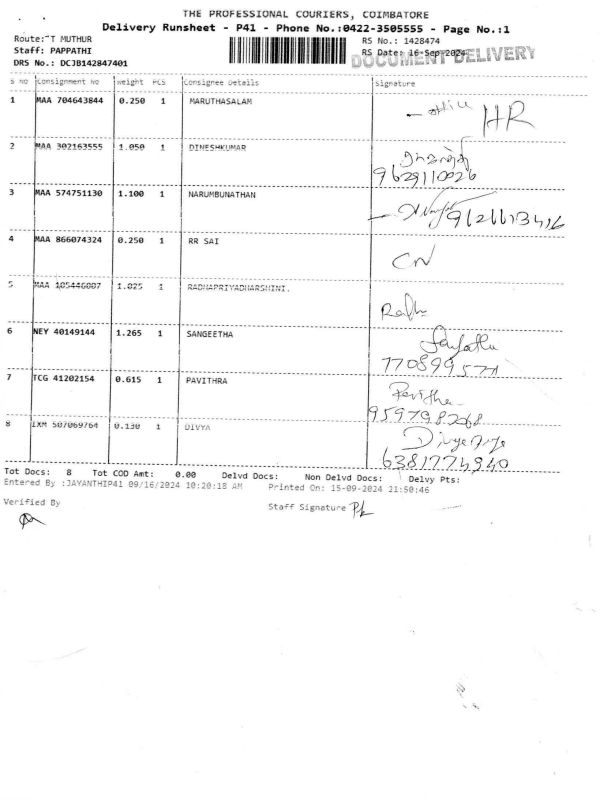 THE PROFESSIONAL COURIERS, COIMBATORE
Delivery Runsheet - P41 - Phone No.:0422-3505555 - Page No.:1
Route: T MUTHUR RS No.: 1428474
Staff: PAPPATHI RS Date: 16-Sep-2024
DOCUMENT DELIVERY
DRS No.: DCJB142847401
S No Consignment No Weight PCS Consignee Details Signature
1 MAA 704643844 0.250 1 MARUTHASALAM - office HR
2 MAA 302163555 1.050 1 DINESHKUMAR
9629110026
3 MAA 574751130 1.100 1 NARUMBUNATHAN
4 MAA 866074324 0.250 1 RR SAI CN
5 MAA 105446007 1.025 1 RADHAPRIYADHARSHINI.
Radha
6 NEY 40149144 1.265 1 SANGEETHA Sangeetha
7 TCG 41202154 0.615 1 PAVITHRA Pavithra
959798268
8 IXM 507069764 0.130 1 DIVYA
6381774940
Tot Docs: 8 Tot COD Amt: 0.00 Delvd Docs: Non Delvd Docs: Delvy Pts:
Entered By :JAYANTHIP41 09/16/2024 10:20:18 AM Printed On: 15-09-2024 21:50:46
Verified By Staff Signature